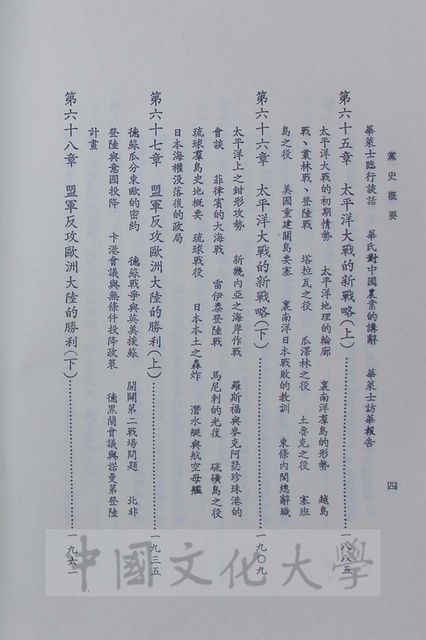 黨史概要
四
華萊士臨行談話　華氏對中國農業的講辭　華萊士訪華報告
第六十五章　太平洋大戰的新戰略（上）……………一八八五
太平洋大戰的初期情勢　太平洋地理的輪廓　裏南洋羣島的形勢　越島
戰、叢林戰、登陸戰　塔拉瓦之役　瓜澤林之役　土魯克之役　塞班
島之役　美國重建關島要塞　裏南洋日本戰敗的教訓　東條內閣總辭職
第六十六章　太平洋大戰的新戰略（下）……………一九〇九
太平洋上之鉗形攻勢　新幾內亞之海岸作戰　羅斯福與麥克阿瑟珍珠港的
會談　菲律賓的大海戰　雷伊泰登陸戰　馬尼剌的光復　硫磺島之役
琉球羣島史地概要　琉球戰役　日本本土之轟炸　潛水艇與航空母艦
日本海權沒落後的政局
第六十七章　盟軍反攻歐洲大陸的勝利（上）……………一九三五
德蘇瓜分東歐的密約　德蘇戰爭與英美援蘇　開闢第二戰場問題　北非
登陸與意國投降　卡港會議與無條件投降政策　德黑蘭會議與諾曼第登陸
計畫
第六十八章　盟軍反攻歐洲大陸的勝利（下）……………一九六一
中國文化大學